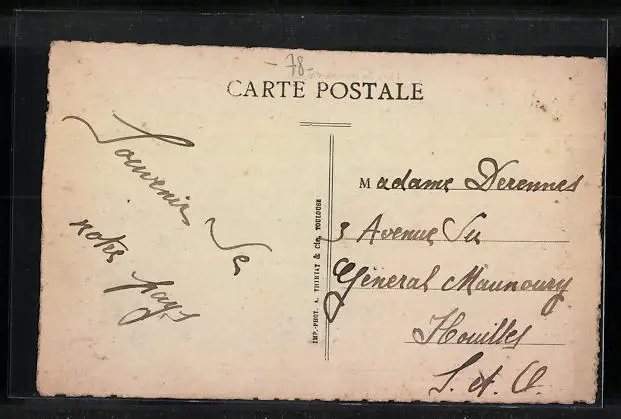 - 78 -
CARTE POSTALE
Souvenir de
notre pays
IMP.-PHOT. A. THIRIAT & Cie, TOULOUSE
Madame Derennes
3 Avenue du
Général Maunoury
Houilles
S. et O.